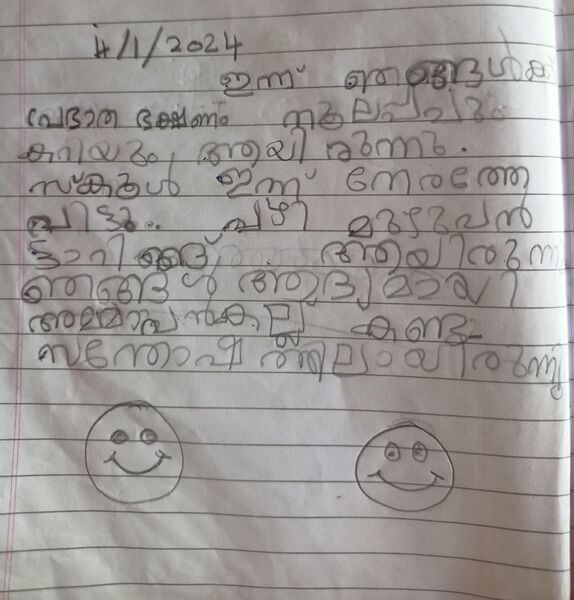 4/1/2024
ഇന്ന് ഞങ്ങൾക്
പ്രഭാത ഭക്ഷണം നൂലപ്പവും
കറിയും ആയിരുന്നു.
സ്കൂൾ ഇന്ന് നേരത്തേ
വിട്ടു.. വഴി മുഴുവൻ
ആയിരുന്നു
ഞങ്ങൾ ആദ്യമായി
കണ്ടു
സന്തോഷത്തിലായിരുന്നു